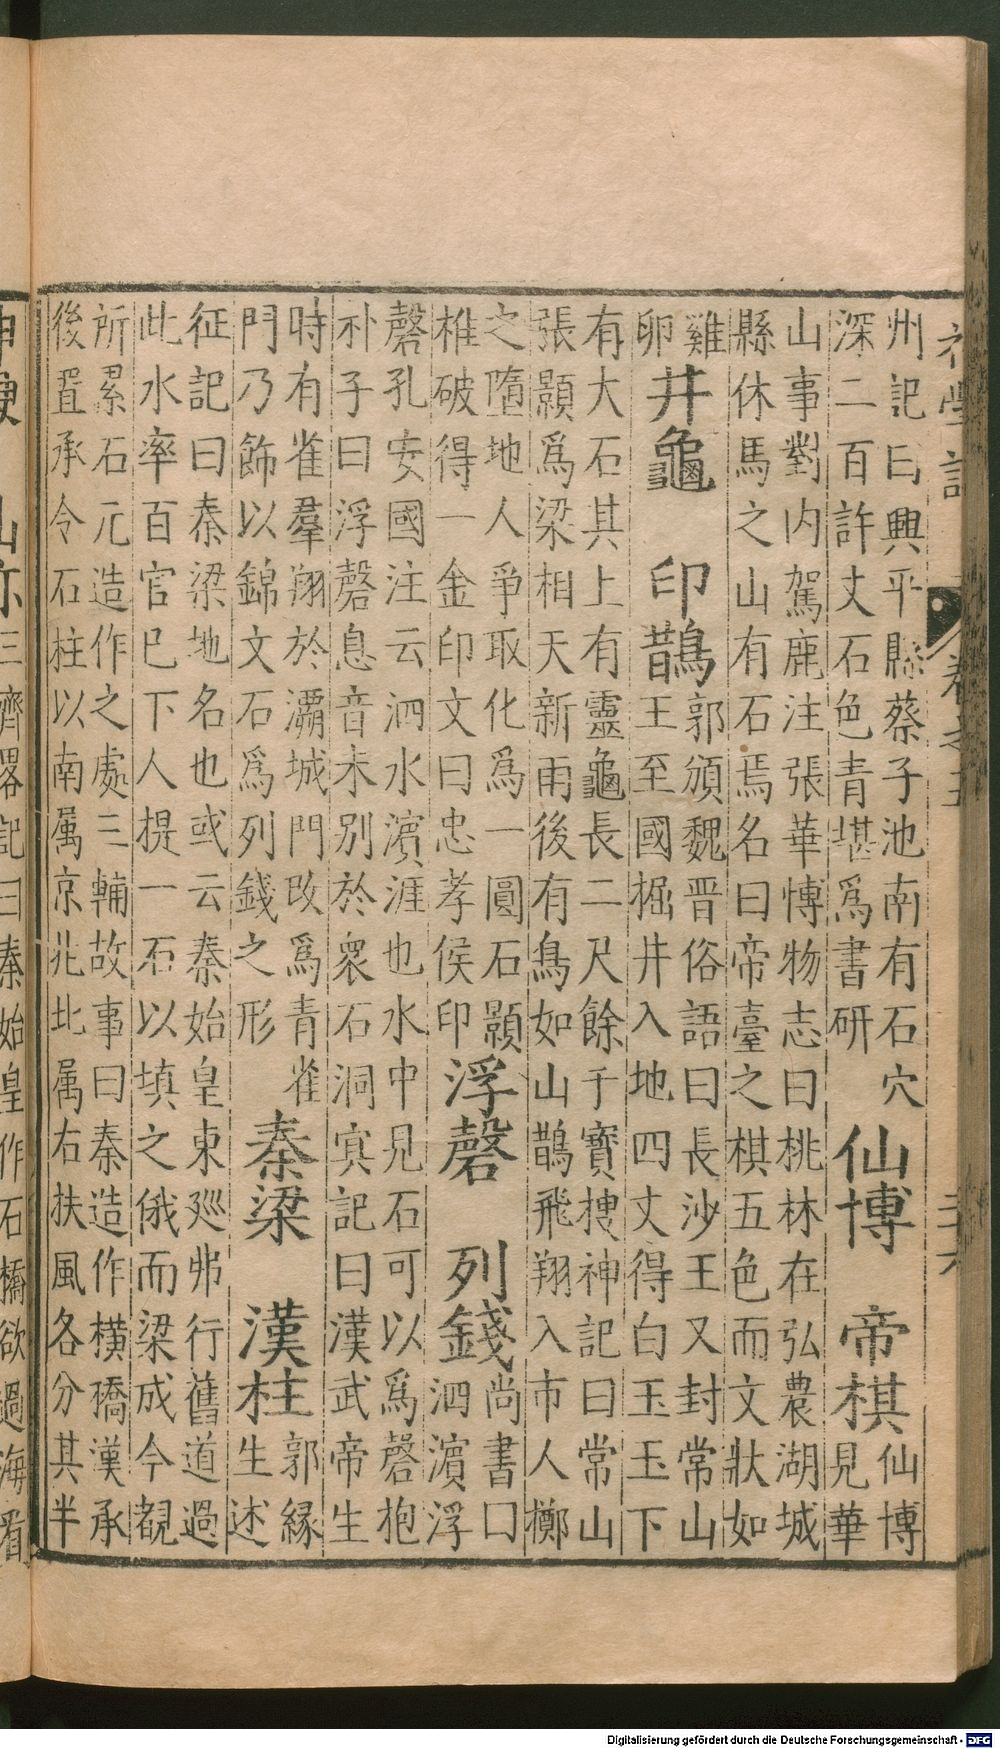 初學記 卷之五
州記曰興平縣蔡子池南有石穴
深二百許丈石色青堪爲書研
仙博 帝棋
仙博
見華
山事對内駕鹿注張華博物志曰桃林在弘農湖城
縣休馬之山有石焉名曰帝臺之棋五色而文狀如
雞
卵
井龜 印鵲
郭頒魏晋俗語曰長沙王又封常山
王至國掘井入地四丈得白玉玉下
有大石其上有靈龜長二尺餘于寶搜神記曰常山
張顥爲梁相天新雨後有鳥如山鵲飛翔入市人擲
之墮地人爭取化爲一圓石顥
椎破得一金印文曰忠孝侯印
浮磬 列錢
尚書曰
泗濱浮
磬孔安國注云泗水濵涯也水中見石可以爲磬抱
朴子曰浮磬息音未別於衆石洞冥記曰漢武帝生
時有雀羣翔於灞城門改爲青雀
門乃飾以錦文石爲列錢之形
秦梁 漢柱
郭緣
生述
征記曰秦梁地名也或云秦始皇東廵弗行舊道過
此水率百官已下人提一石以填之俄而梁成今覩
所累石元造作之處三輔故事曰秦造作橫橋漢承
後置承令石柱以南属京兆北属右扶風各分其半
三齊畧記曰秦始皇作石橋欲過海看
Digitalisierung gefördert durch die Deutsche Forschungsgemeinschaft - DFG